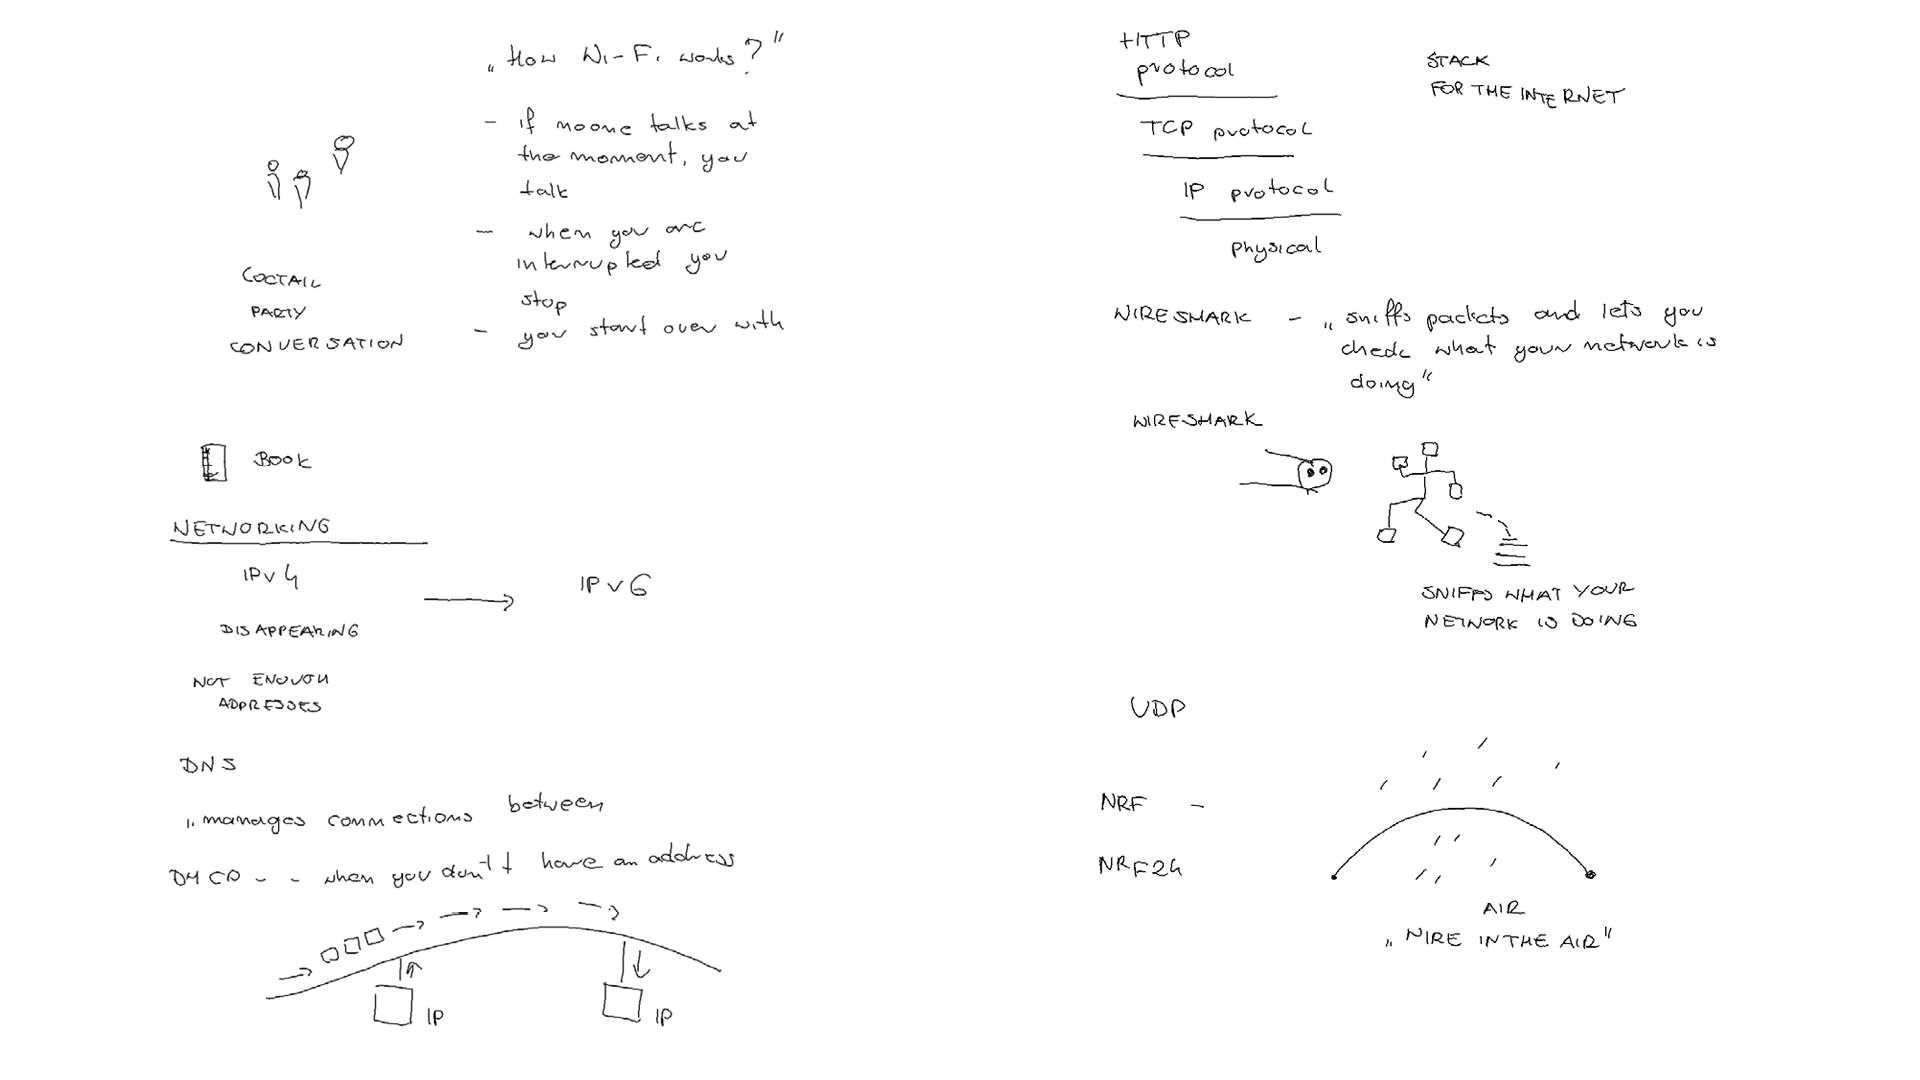 „How Wi-Fi works?"
- if noone talks at
the moment, you
talk
- when you are
interrupted you
stop
- you start over with
COCTAIL
PARTY
CONVERSATION
BOOK
NETWORKING
IPv4
IPv6
DISAPPEARING
NOT ENOUGH
ADDRESSES
DNS
„manages connections between
DHCP - - when you don't have an address
IP
IP
HTTP
protocol
STACK
FOR THE INTERNET
TCP protocol
IP protocol
physical
WIRESHARK - „sniffs packets and lets you
check what your network is
doing"
WIRESHARK
SNIFFS WHAT YOUR
NETWORK IS DOING
UDP
NRF -
NRF24
AIR
„WIRE IN THE AIR"